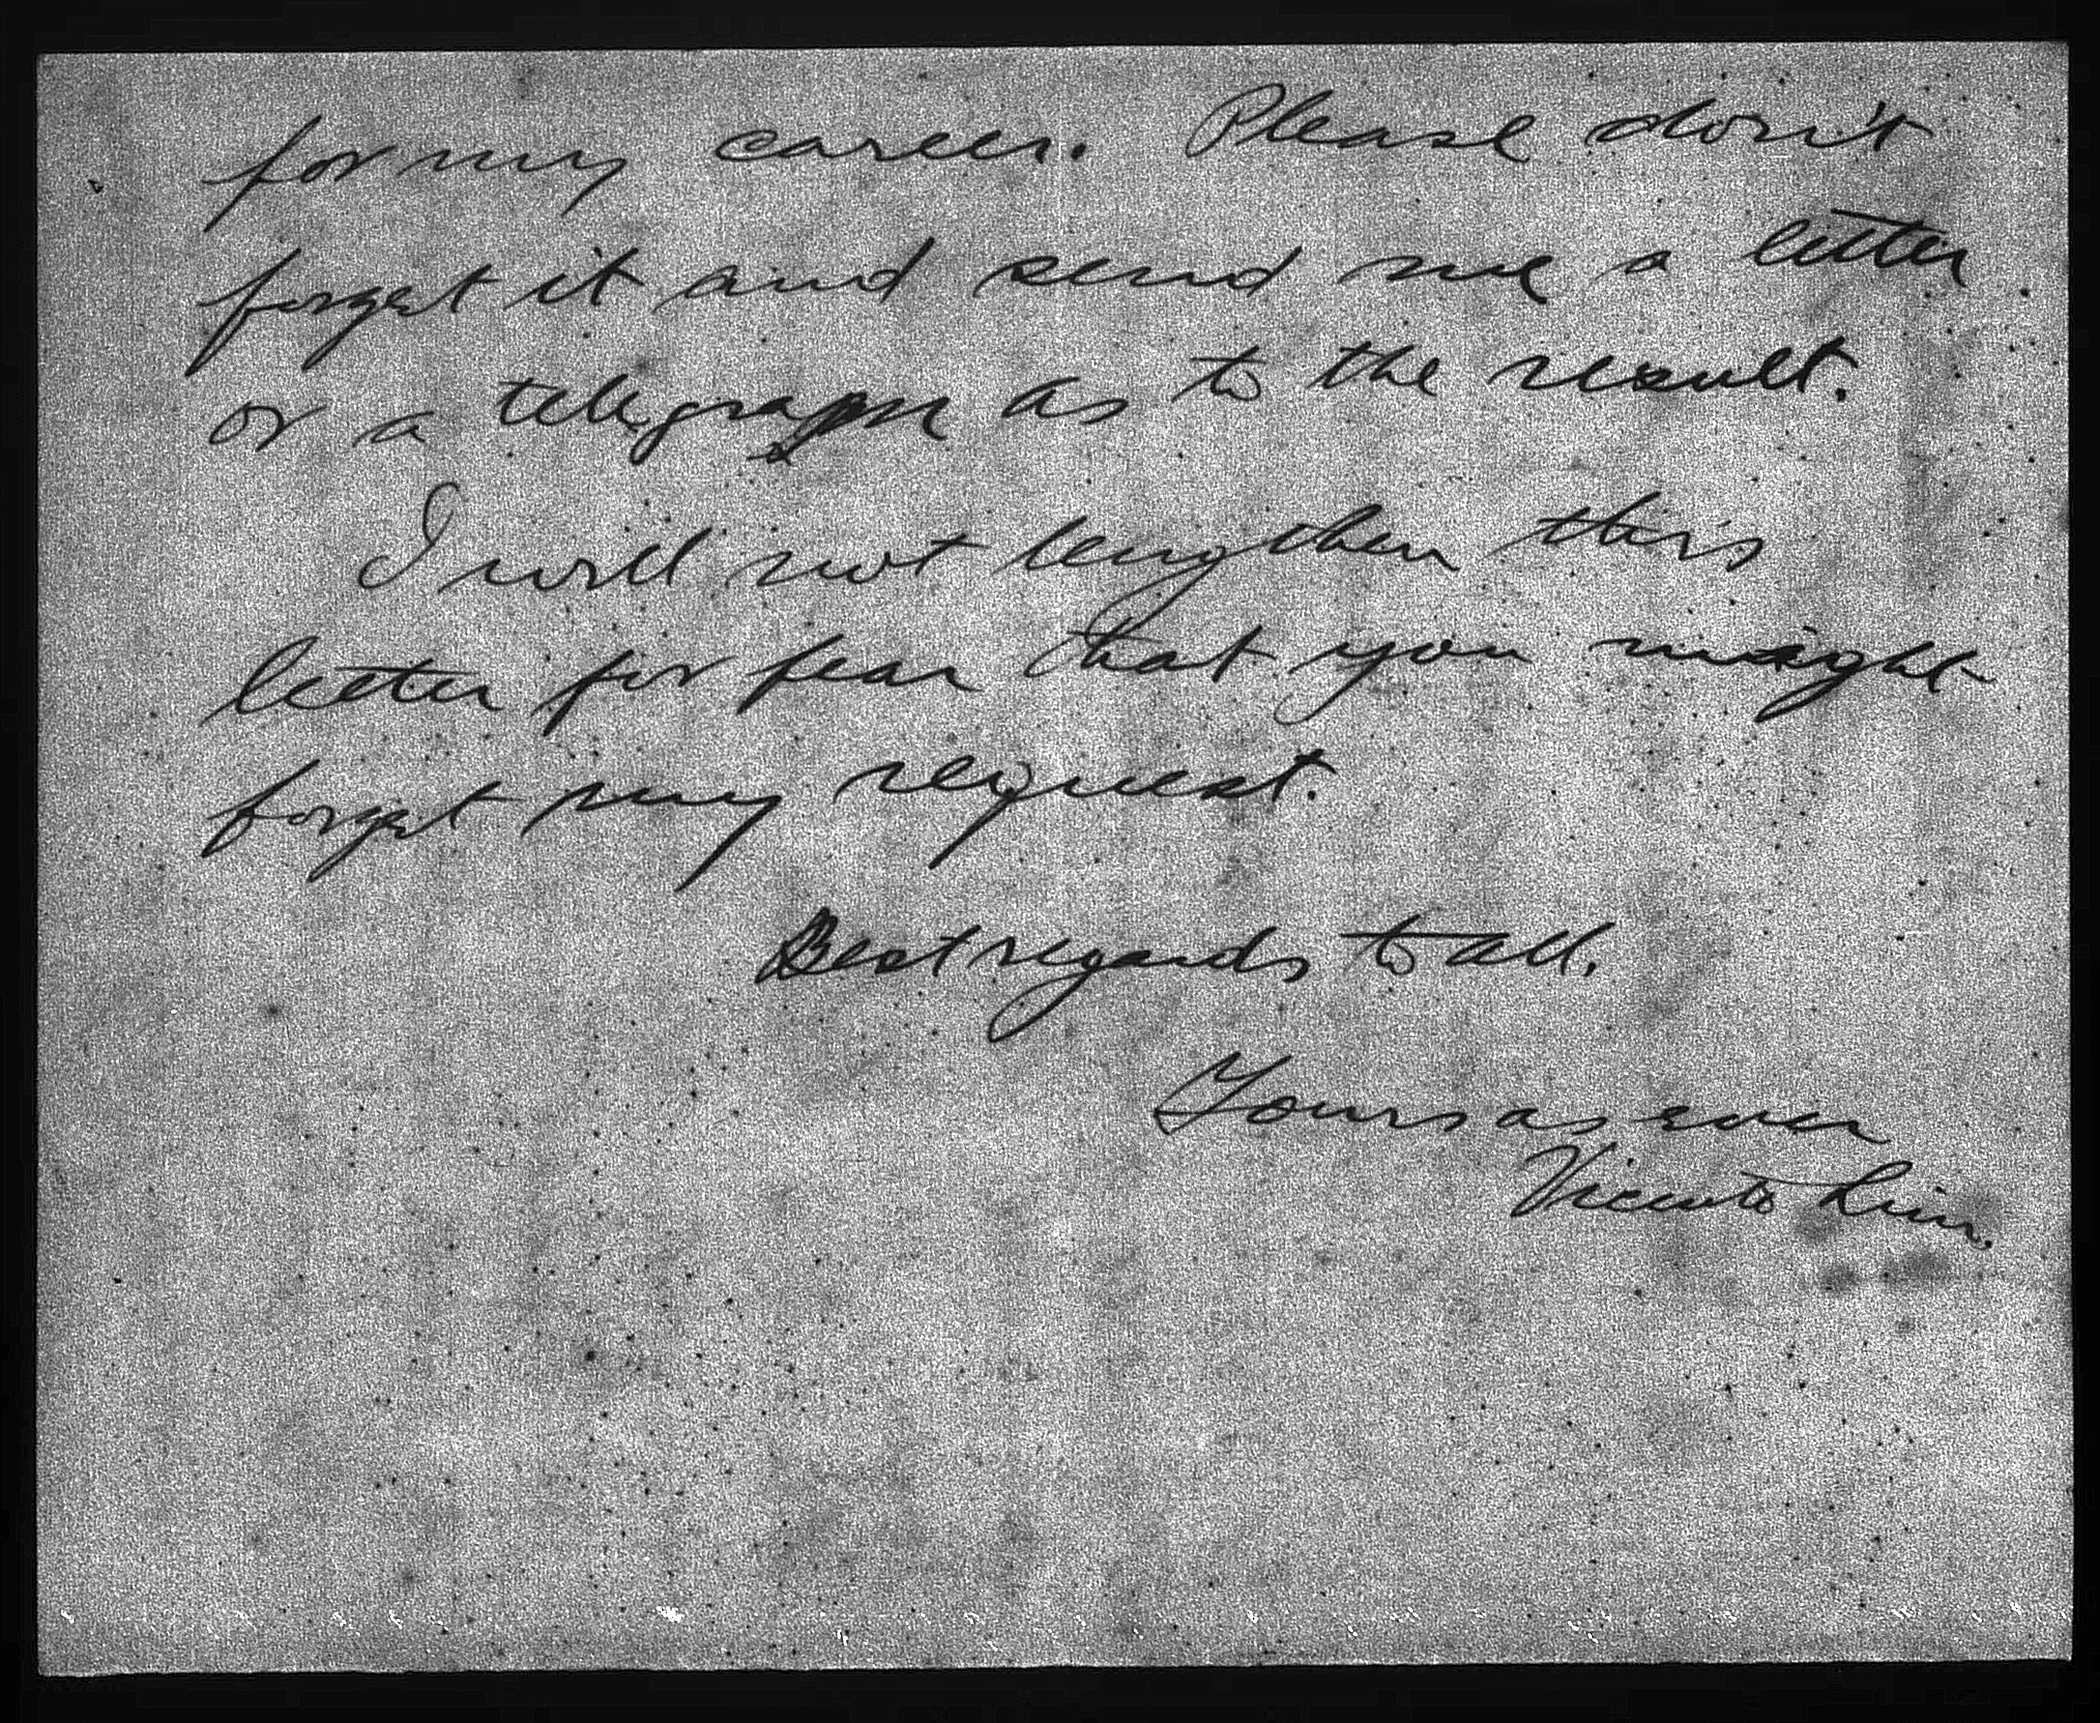 for my career. Please don't
forget it and send me a letter
or a telegram as to the result.
I will not lengthen this
letter for fear that you might
forget my request.
Best regards to all.
Yours as ever
Vicente Lim.